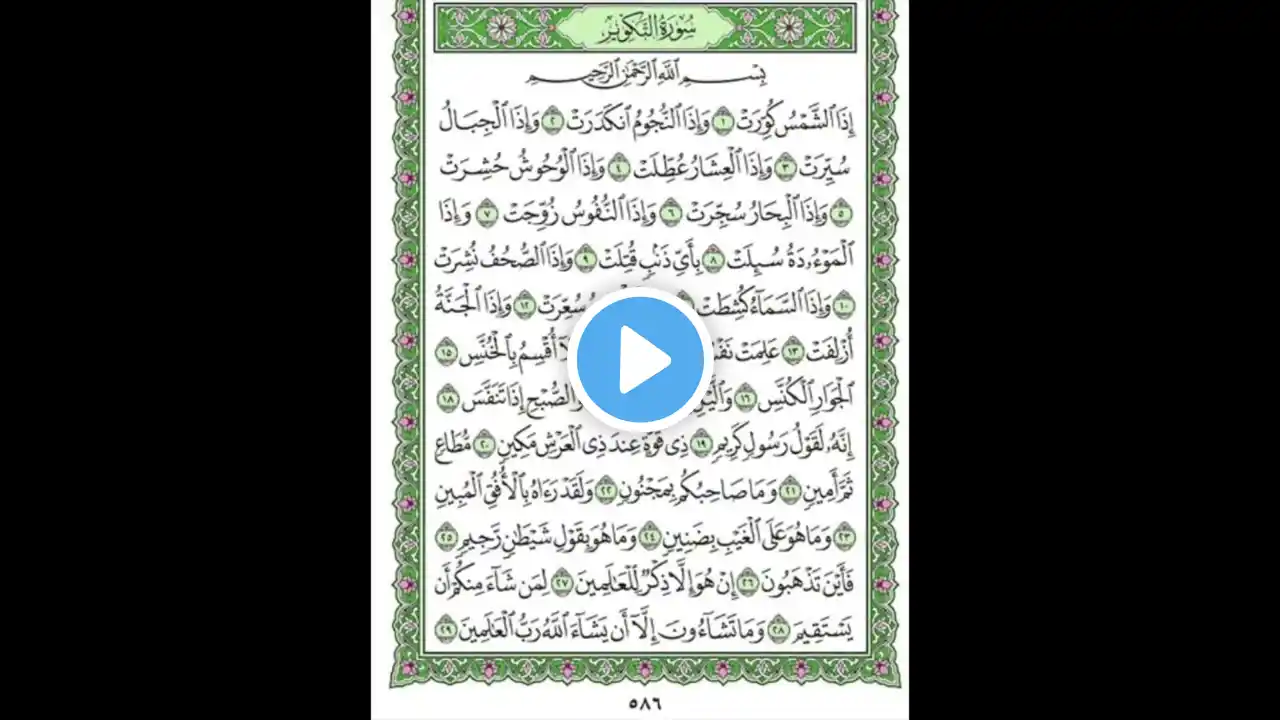 سُورَةُ التَّكْوِيرِ
بِسْمِ ٱللَّهِ ٱلرَّحْمَٰنِ ٱلرَّحِيمِ
إِذَا ٱلشَّمْسُ كُوِّرَتْ ١ وَإِذَا ٱلنُّجُومُ ٱنكَدَرَتْ ٢ وَإِذَا ٱلْجِبَالُ
سُيِّرَتْ ٣ وَإِذَا ٱلْعِشَارُ عُطِّلَتْ ٤ وَإِذَا ٱلْوُحُوشُ حُشِرَتْ
٥ وَإِذَا ٱلْبِحَارُ سُجِّرَتْ ٦ وَإِذَا ٱلنُّفُوسُ زُوِّجَتْ ٧ وَإِذَا
ٱلْمَوْءُۥدَةُ سُئِلَتْ ٨ بِأَىِّ ذَنۢبٍ قُتِلَتْ ٩ وَإِذَا ٱلصُّحُفُ نُشِرَتْ
١٠ وَإِذَا ٱلسَّمَآءُ كُشِطَتْ سُعِّرَتْ ١٢ وَإِذَا ٱلْجَنَّةُ
أُزْلِفَتْ ١٣ عَلِمَتْ أُقْسِمُ بِٱلْخُنَّسِ ١٥
ٱلْجَوَارِ ٱلْكُنَّسِ ١٦ إِذَا تَنَفَّسَ ١٨
إِنَّهُۥ لَقَوْلُ رَسُولٍ كَرِيمٍ ١٩ ذِى قُوَّةٍ عِندَ ذِى ٱلْعَرْشِ مَكِينٍ ٢٠ مُّطَاعٍ
ثَمَّ أَمِينٍ ٢١ وَمَا صَاحِبُكُم بِمَجْنُونٍ ٢٢ وَلَقَدْ رَءَاهُ بِٱلْأُفُقِ ٱلْمُبِينِ
٢٣ وَمَا هُوَ عَلَى ٱلْغَيْبِ بِضَنِينٍ ٢٤ وَمَا هُوَ بِقَوْلِ شَيْطَٰنٍ رَّجِيمٍ ٢٥
فَأَيْنَ تَذْهَبُونَ ٢٦ إِنْ هُوَ إِلَّا ذِكْرٌ لِّلْعَٰلَمِينَ ٢٧ لِمَن شَآءَ مِنكُمْ أَن
يَسْتَقِيمَ ٢٨ وَمَا تَشَآءُونَ إِلَّآ أَن يَشَآءَ ٱللَّهُ رَبُّ ٱلْعَٰلَمِينَ ٢٩
٥٨٦